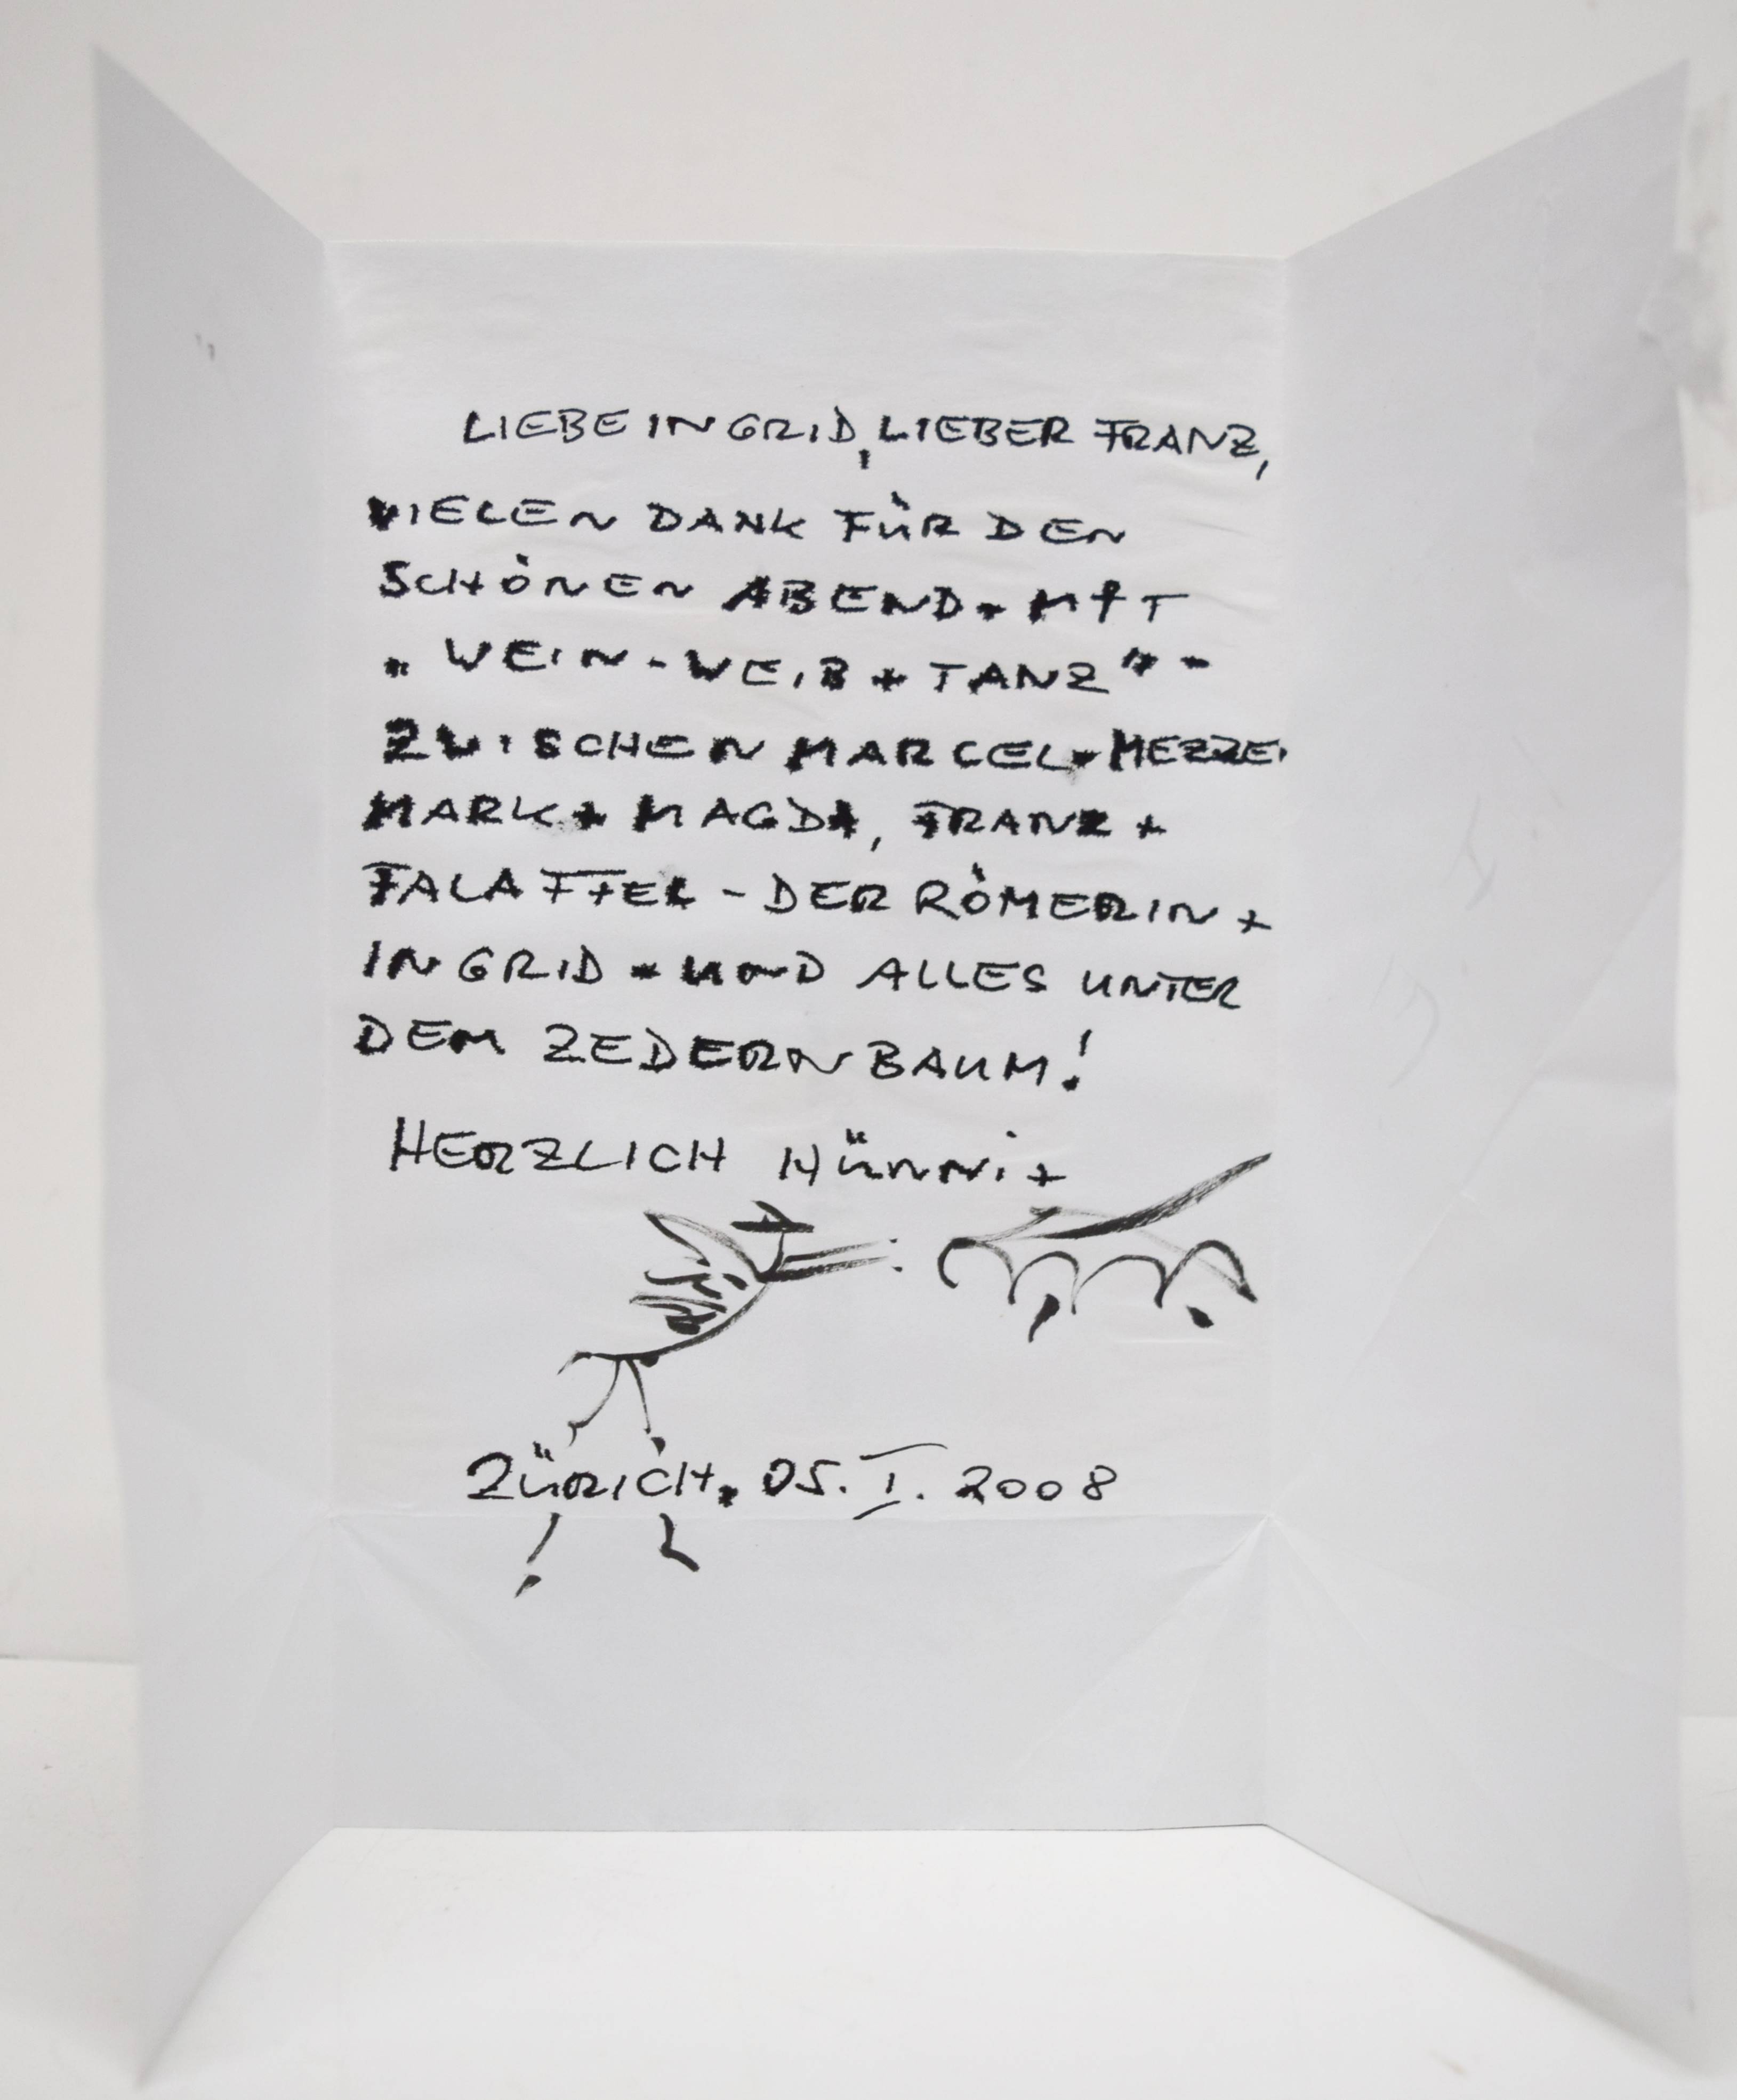 LIEBE INGRID, LIEBER FRANZ,
VIELEN DANK FÜR DEN
SCHÖNEN ABEND - MIT
„WEIN - WEIB + TANZ" -
ZWISCHEN MARCEL + MEZZEI
MARK + MAGDA, FRANZ +
FALAFFEL - DER RÖMERIN +
INGRID - UND ALLES UNTER
DEM ZEDERNBAUM!
HERZLICH HÜNNI +
ZÜRICH, 05. I. 2008